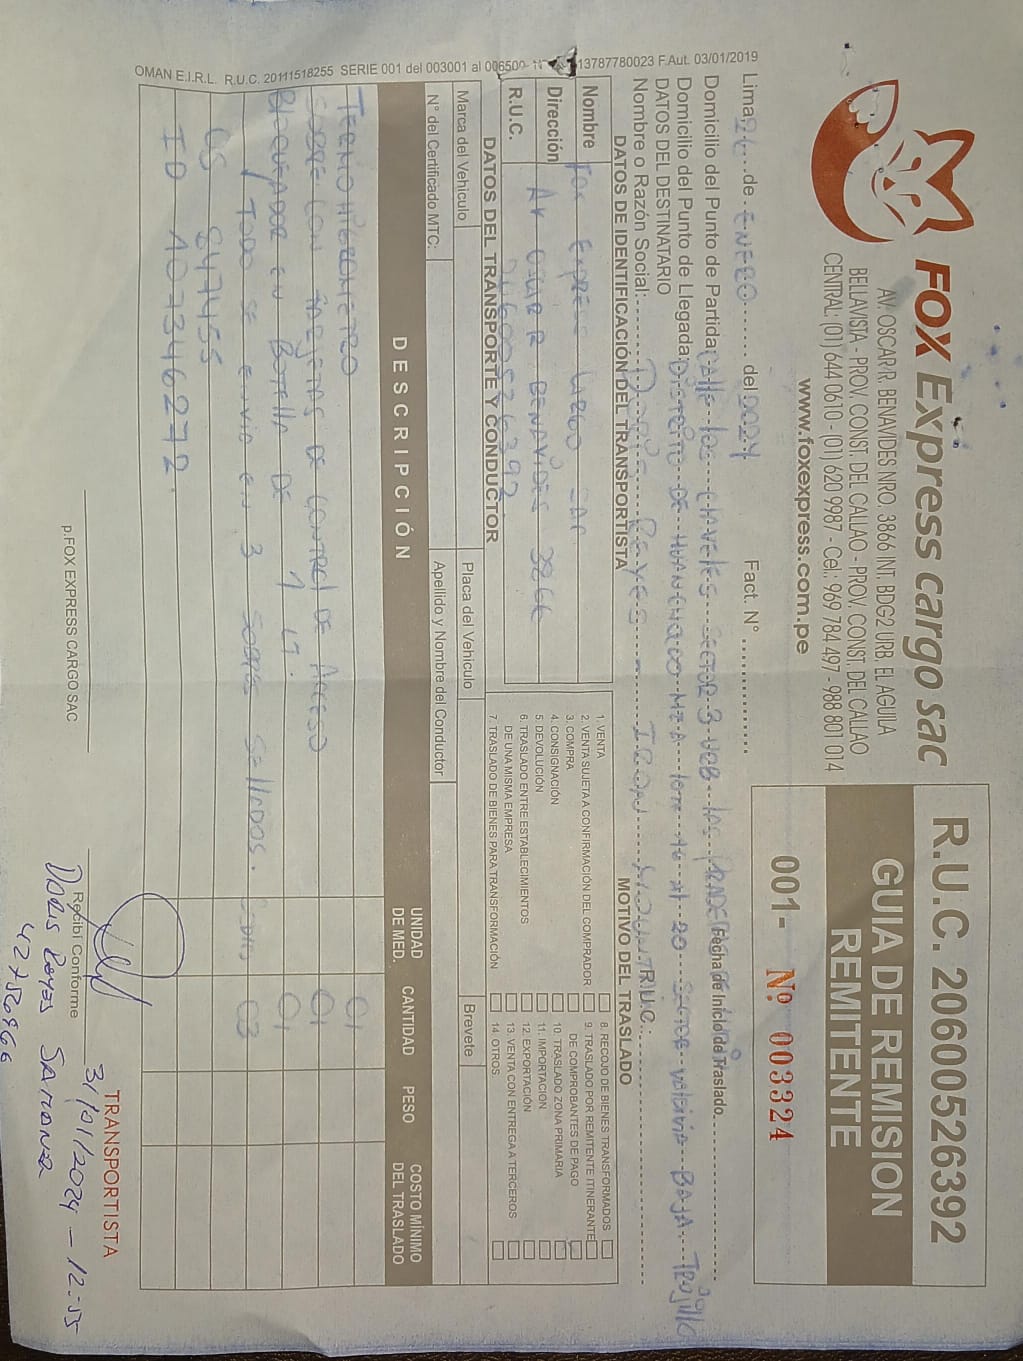 FOX Express cargo sac
AV. OSCAR R. BENAVIDES NRO. 3866 INT. BDG2 URB. EL AGUILA
BELLAVISTA - PROV. CONST. DEL CALLAO - PROV. CONST. DEL CALLAO
CENTRAL: (01) 644 0610 - (01) 620 9987 - Cel.: 969 784 497 - 988 801 014
www.foxexpress.com.pe
R.U.C. 20600526392
GUIA DE REMISION
REMITENTE
001- Nº 003324
Lima, de ENERO del 2024 Fact. N°
Domicilio del Punto de Partida: Calle los CLAVELES SECTOR 3 URB. las Fecha de Inicio de Traslado
Domicilio del Punto de Llegada: DISTRITO DE HUANCHACO MZA 20 SECTOR VALDIVIA BAJA - TRUJILLO
DATOS DEL DESTINATARIO
Nombre o Razón Social: DORIS REYES IRON MOUNT R.U.C.:
DATOS DE IDENTIFICACIÓN DEL TRANSPORTISTA
Nombre FOX EXPRESS CARGO SAC
Dirección AV OSCAR R BENAVIDES 3866
R.U.C. 20600526392
MOTIVO DEL TRASLADO
1. VENTA
2. VENTA SUJETA A CONFIRMACIÓN DEL COMPRADOR
3. COMPRA
4. CONSIGNACIÓN
5. DEVOLUCIÓN
6. TRASLADO ENTRE ESTABLECIMIENTOS
DE UNA MISMA EMPRESA
7. TRASLADO DE BIENES PARA TRANSFORMACIÓN
8. RECOJO DE BIENES TRANSFORMADOS
9. TRASLADO POR REMITENTE ITINERANTE
DE COMPROBANTES DE PAGO
10. TRASLADO ZONA PRIMARIA
11. IMPORTACION
12. EXPORTACIÓN
13. VENTA CON ENTREGA A TERCEROS
14. OTROS
DATOS DEL TRANSPORTE Y CONDUCTOR
Marca del Vehiculo Placa del Vehiculo Brevete
N° del Certificado MTC: Apellido y Nombre del Conductor
DESCRIPCIÓN UNIDAD DE MED. CANTIDAD PESO COSTO MÍNIMO DEL TRASLADO
TERMOHIGROMETRO 01
SOBRE CON TARJETAS DE CONTROL DE ACCESO 01
BLOQUEADOR EN BOTELLA DE 1 LT. 01
/ TODO SE ENVIA EN 3 SOBRES SELLADOS. 03
OS 847455
ID A0734627​2.
OMAN E.I.R.L. R.U.C. 20111518255 SERIE 001 del 003001 al 006500 13787780023 F.Aut. 03/01/2019
p.FOX EXPRESS CARGO SAC
Recibí Conforme
TRANSPORTISTA
31/01/2024 - 12:55
DORIS REYES